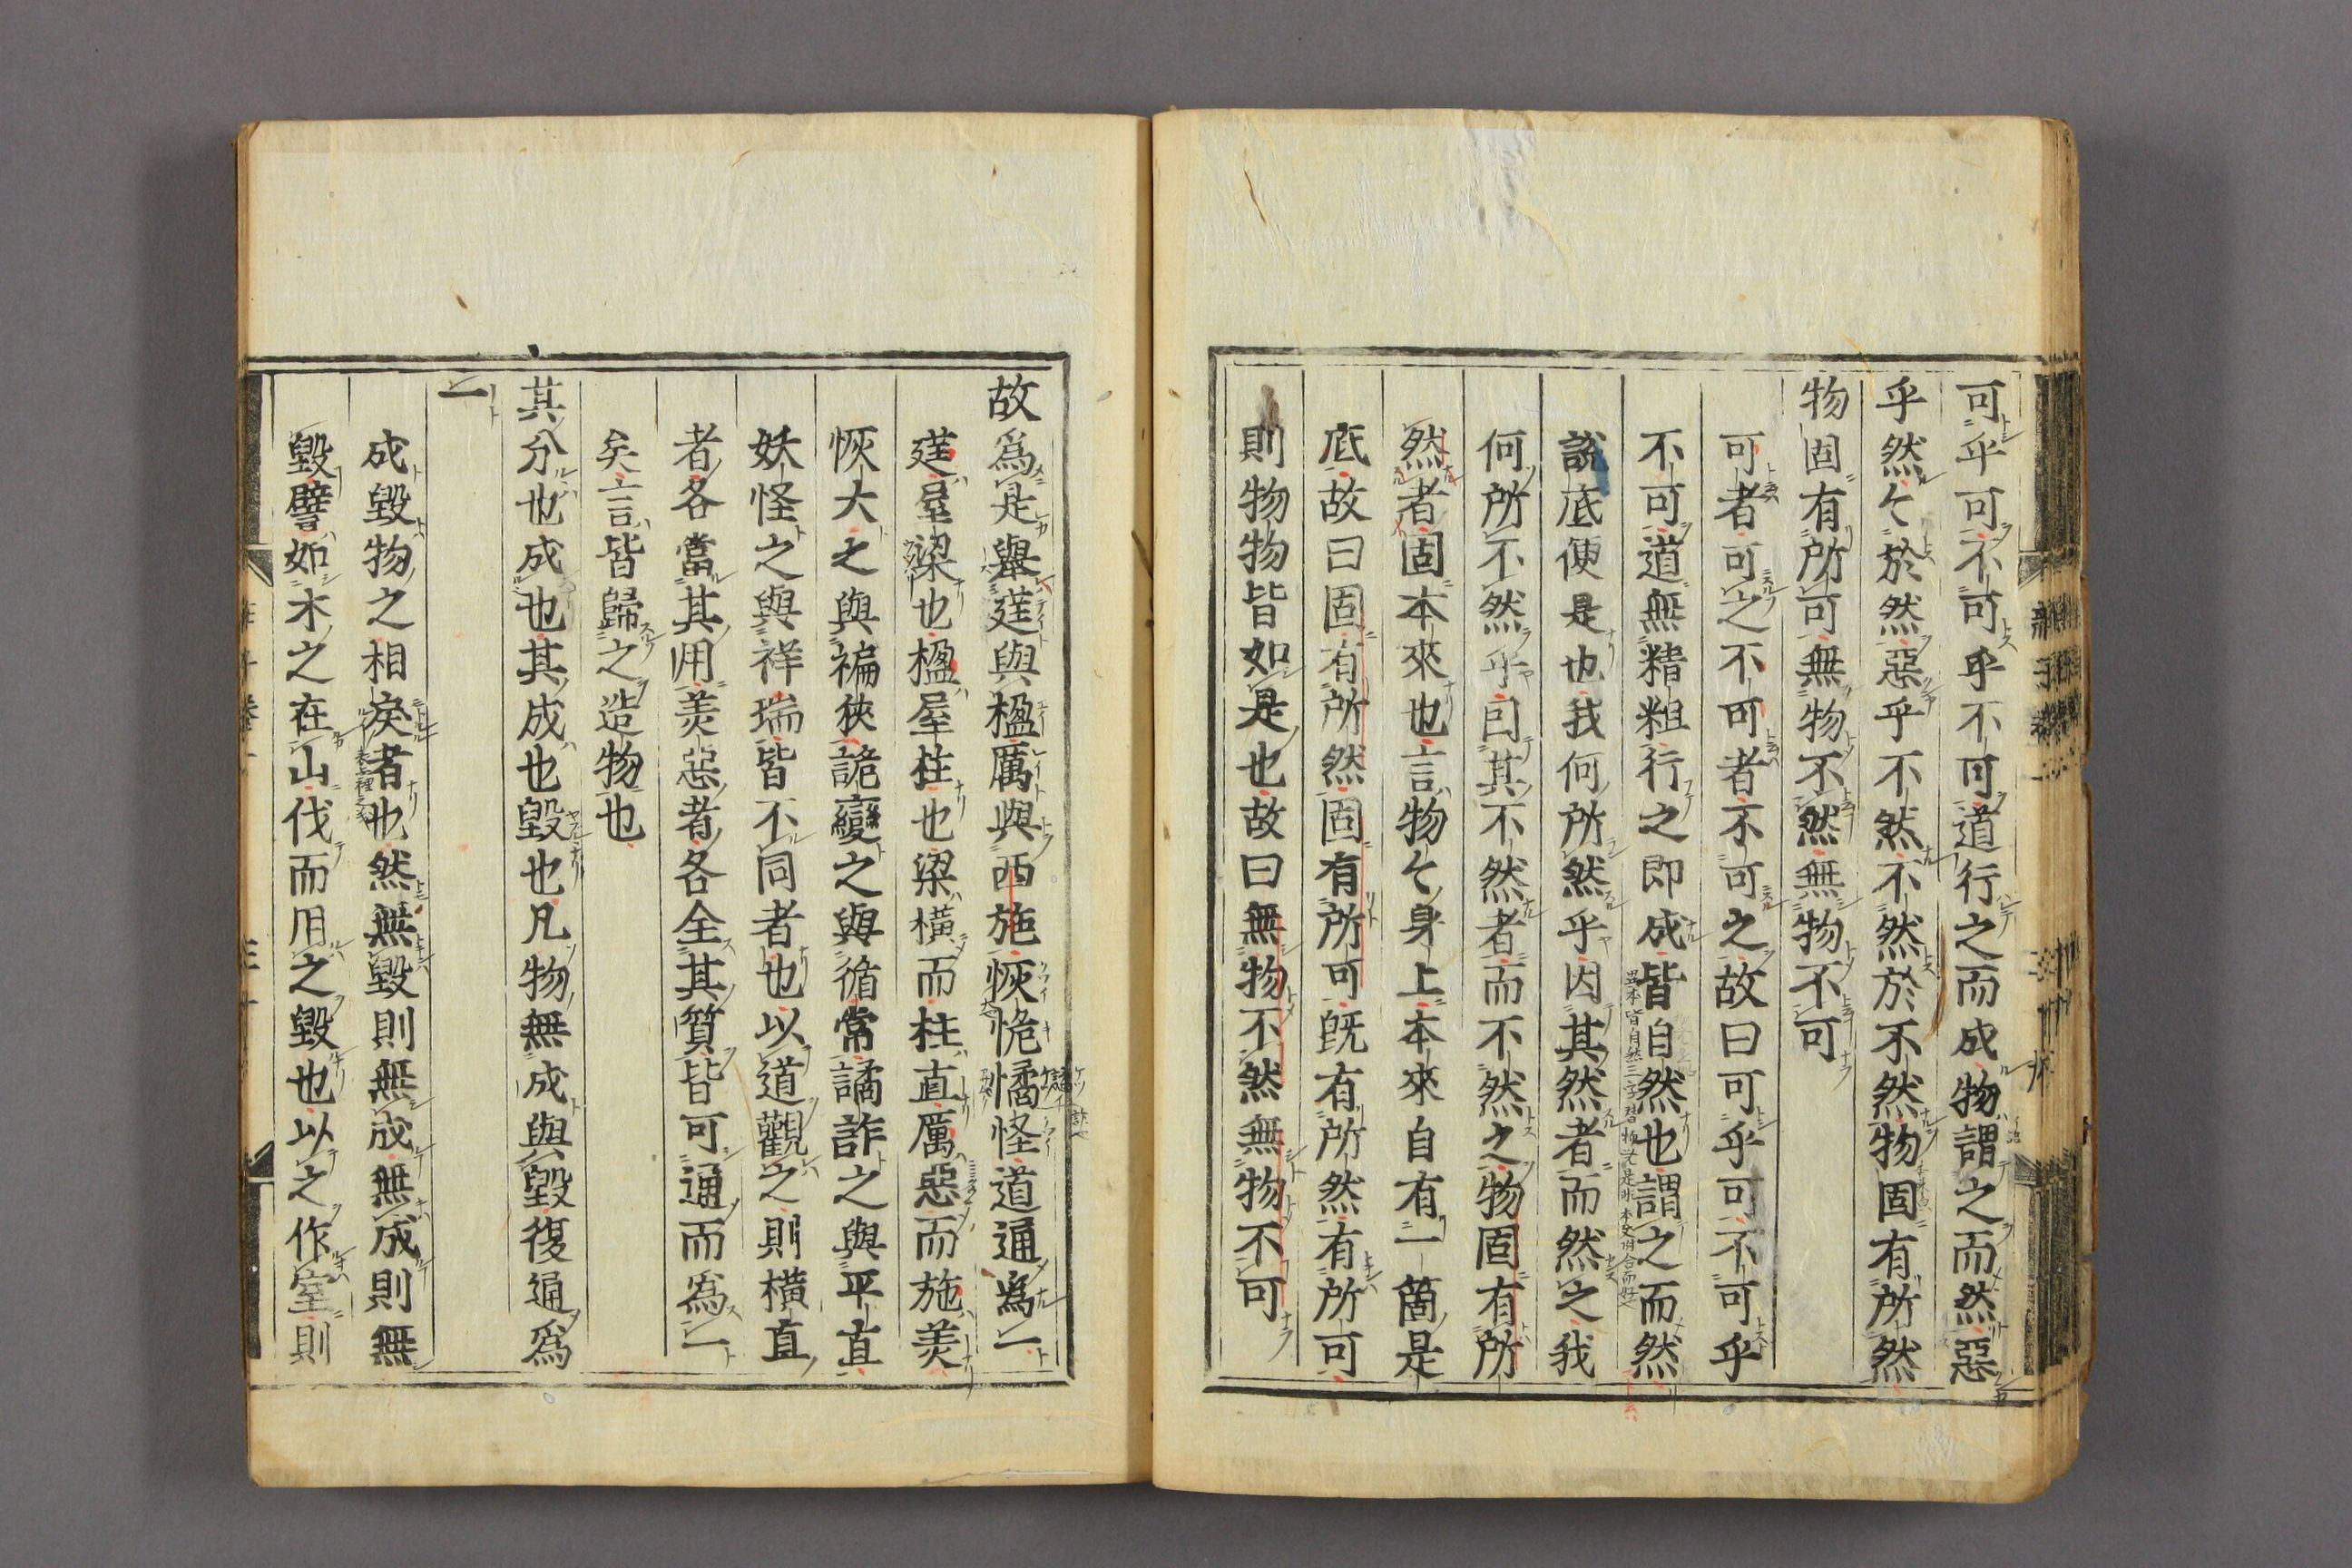 可乎可不可乎不可道行之而成物謂之而然惡
乎然〻於然惡乎不然不然於不然物固有所然
物固有所可無物不然無物不可
可者可之不可者不可之故曰可乎可不可乎
不可道無精粗行之即成皆自然也謂之而然
説底便是也我何所然乎因其然者而然之我
何所不然乎因其不然者而不然之物固有所
然者固本來也言物〻身上本來自有一箇是
底故曰固有所然固有所可既有所然有所可
則物物皆如是也故曰無物不然無物不可
故爲是舉莛與楹厲與西施恢恑憰怪道通爲一
莛屋梁也楹屋柱也梁橫而柱直厲惡而施美
恢大之與褊狹詭變之與循常譎詐之與平直
妖怪之與祥瑞皆不同者也以道觀之則橫直
者各當其用美惡者各全其質皆可通而爲一
矣言皆歸之造物也
其分也成也其成也毀也凡物無成與毀復通爲
一
成毀物之相戾者也然無毀則無成無成則無
毀譬如木之在山伐而用之毀也以之作室則